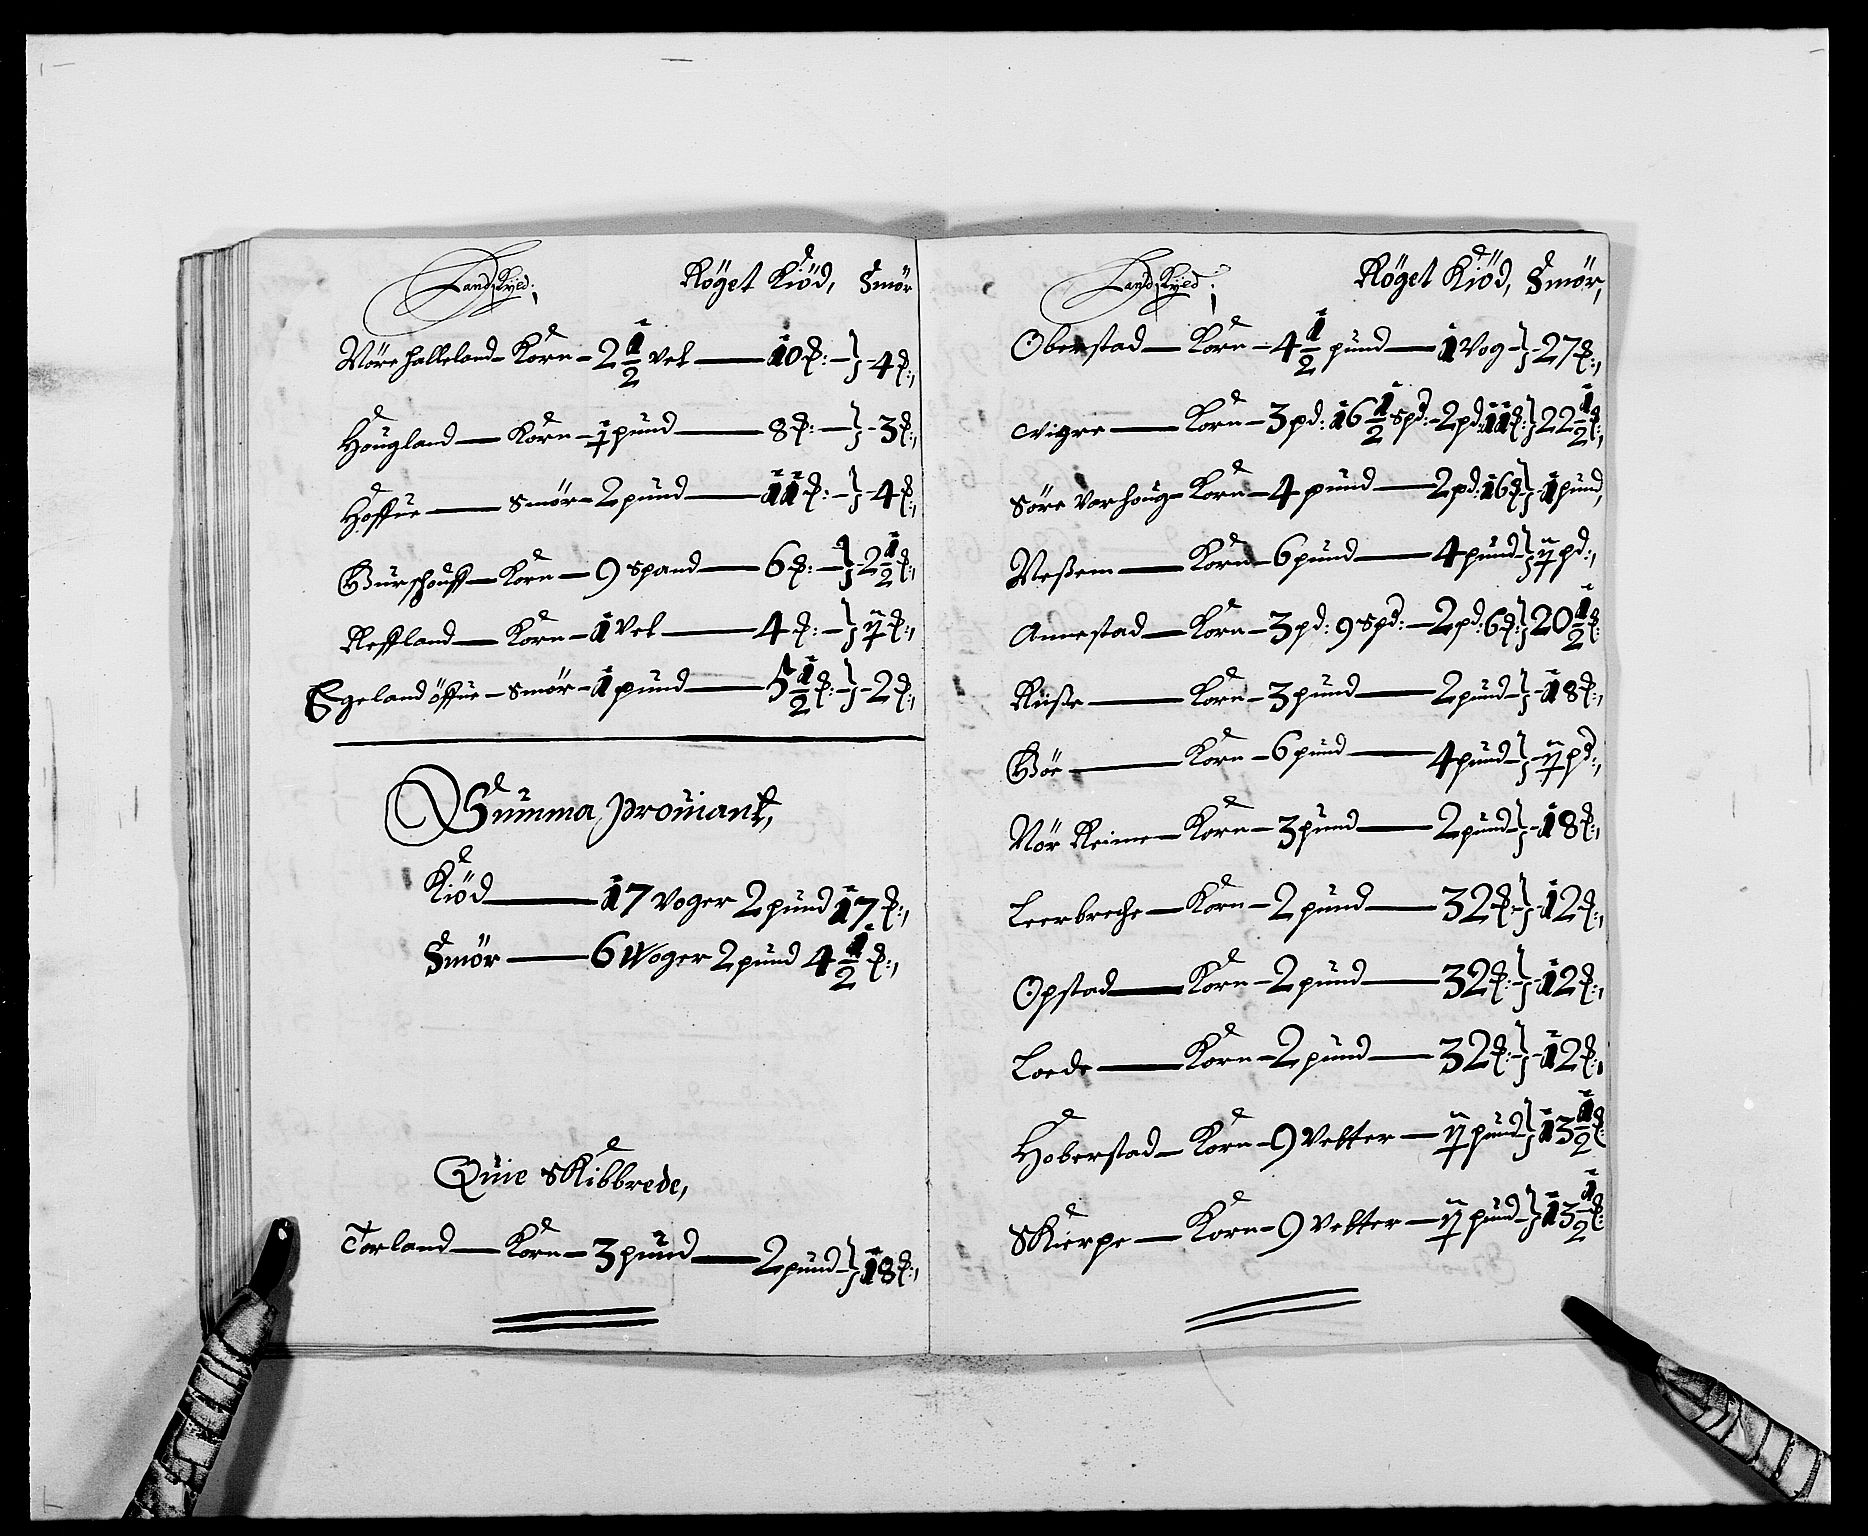 Landskyld. Röget Kiöd, Smör
Nörehalleland — Korn – 2 1/2 Vet — 10 ℔: –} – 4 ℔:,
Hougland — Korn – 1 pund — 8 ℔: –} – 3 ℔:,
Hoffue — Smör – 2 pund — 11 ℔: –} – 4 ℔:,
Gurschouff — Korn — 9 Spand — 6 ℔: –} 2 1/2 ℔:,
Reffland — Korn – 1 Vet — 4 ℔: –} ij ℔:,
Egeland öffue – Smör – 1 pund — 5 1/2 ℔: –} – 2 ℔:,
Summa Prouiant,
Kiöd — 17 Voger 2 pund 17 ℔:,
Smör — 6 Woger 2 pund 4 1/2 ℔:,
Quie Skibbrede,
Torland — Korn – 3 pund — 2 pund –} 18 ℔:,
Landskyld. Röget Kiöd, Smör,
Oberstad — Korn – 4 1/2 pund — 1 Vog –} – 27 ℔:,
Vigre — Korn – 3 pd: 16 1/2 spd: – 2 pd: 11 ℔:} 22 1/2 ℔:,
Söre Varhoug – Korn – 4 pund — 2 pd: 16 ℔} – 1 pund,
Neßem — Korn – 6 pund — 4 pund –} ij pd:,
Annestad — Korn – 3 pd: 9 spd: – 2 pd: 6 ℔:} 20 1/2 ℔:
Riiße — Korn – 3 pund — 2 pund –} – 18 ℔:,
Böe — Korn – 6 pund — 4 pund –} – ij pd:,
Nör Reime – Korn – 3 pund — 2 pund –} – 18 ℔:,
Leerbreche — Korn – 2 pund — 32 ℔: –} – 12 ℔:,
Opstad — Korn – 2 pund — 32 ℔: –} – 12 ℔:,
Loede — Korn – 2 pund — 32 ℔: –} – 12 ℔:,
Hoberstad – Korn – 9 Vetter — ij pund} 13 1/2 ℔:
Skierpe — Korn – 9 Vetter — ij pund –} 13 1/2 ℔: